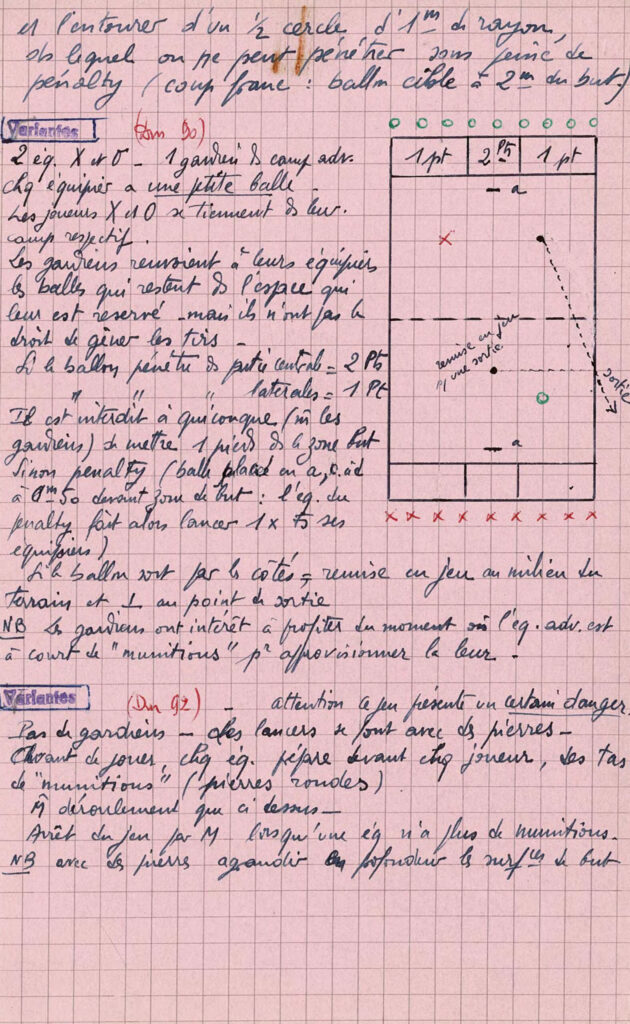 et l'entourer d'un ½ cercle d'1m de rayon,
ds lequel on ne peut pénétrer sous peine de
pénalty (coup franc : ballon cible à 2m du but)
Variantes (Dun 90)
2 éq. X et O - 1 gardien ds camp adv.
chq équipier a une petite balle -
Les joueurs X et O se tiennent ds leur
camp respectif.
Les gardiens renvoient à leurs équipiers
les balles qui restent ds l'espace qui
leur est reservé - mais ils n'ont pas le
droit de gêner les tirs -
Si le ballon pénètre ds partie centrale = 2 Pts
" " " laterales = 1 Pt
Il est interdit à quiconque (m̂ les
gardiens) de mettre 1 pied ds la zone but
sinon penalty (balle placée en a, c.à.d
à 0m50 devant zone de but : l'éq. du
penalty fait alors lancer 1 x ts ses
équipiers)
Si le ballon sort par les côtés = remise en jeu au milieu du
terrain et ⊥ au point de sortie
NB Les gardiens ont intérêt à profiter du moment où l'éq. adv. est
à court de "munitions" pr approvisionner la leur -
1 pt 2 Pts 1 pt
a
remise en jeu
P/ une sortie
sortie
a
Variantes (Dun 92) - attention ce jeu présente un certain danger.
Pas de gardiens - les lancers se font avec des pierres -
Avant de jouer, chq éq. pépare devant chq joueur, des tas
de "munitions" (pierres rondes)
M̂ déroulement que ci dessus -
Arrêt du jeu par M lorsqu'une éq n'a plus de munitions.
NB avec des pierres agrandir en profondeur les surfces de but